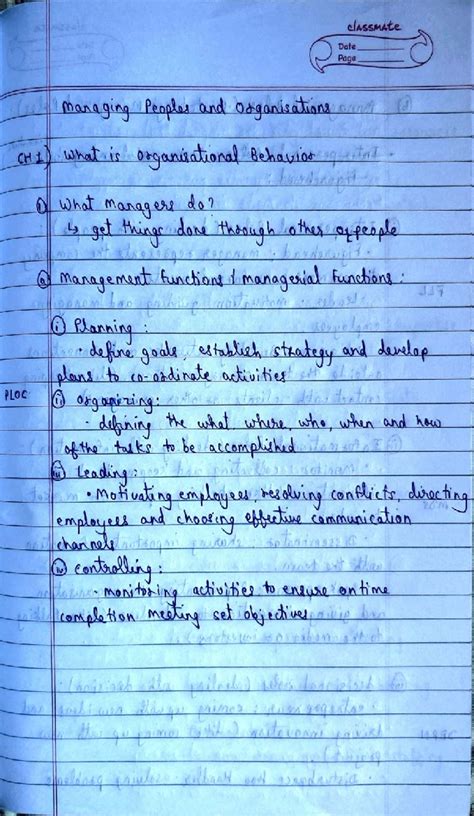 classmate
Date
Page
Managing Peoples and Organisations
CH 1) What is Organisational Behavior
① What managers do?
↳ get things done through other people
@ Management functions / managerial functions :
(i) Planning :
· define goals, establish strategy and develop
plans to co-ordinate activities
PLOC
(ii) organizing :
· defining the what where, who, when and how
of the tasks to be accomplished
(iii) Leading :
· Motivating employees, resolving conflicts, directing
employees and choosing effective communication
channels
(iv) controlling :
· monitoring activities to ensure on time
completion meeting set objectives